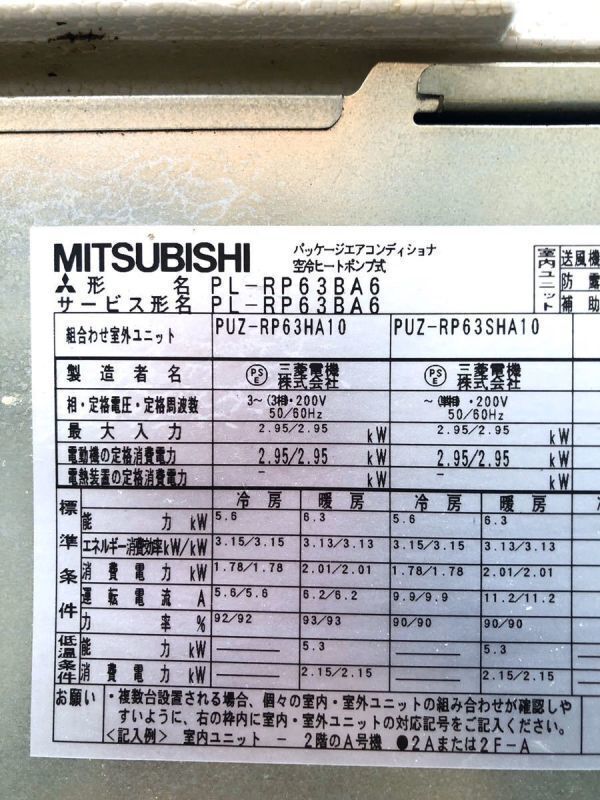 MITSUBISHI
パッケージエアコンディショナ
空冷ヒートポンプ式
形 名 PL-RP63BA6
サービス形名 PL-RP63BA6
室内ユニット
送風機
防露
補助
組合わせ室外ユニット PUZ-RP63HA10 PUZ-RP63SHA10
製造者名 PSE 三菱電機株式会社 PSE 三菱電機株式会社
相・定格電圧・定格周波数 3~(3相)・200V 50/60Hz ~(単相)・200V 50/60Hz
最大入力 2.95/2.95 kW 2.95/2.95 kW
電動機の定格消費電力 2.95/2.95 kW 2.95/2.95 kW
電熱装置の定格消費電力 - kW - kW
標準条件 冷房 暖房 冷房 暖房
能力 kW 5.6 6.3 5.6 6.3
エネルギー消費効率 kW/kW 3.15/3.15 3.13/3.13 3.15/3.15 3.13/3.13
消費電力 kW 1.78/1.78 2.01/2.01 1.78/1.78 2.01/2.01
運転電流 A 5.6/5.6 6.2/6.2 9.9/9.9 11.2/11.2
力率 % 92/92 93/93 90/90 90/90
低温条件 能力 kW —— 5.3 —— 5.3
消費電力 kW —— 2.15/2.15 —— 2.15/2.15
お願い ・複数台設置される場合、個々の室内・室外ユニットの組み合わせが確認しや
すいように、右の枠内に室内・室外ユニットの対応記号をご記入ください。
<記入例> 室内ユニット － 2階のA号機 ●2Aまたは2F-A